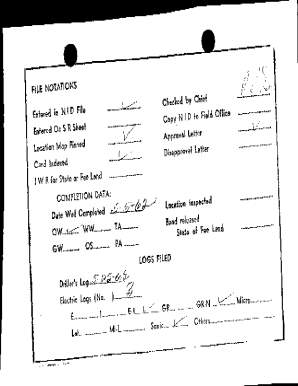 FILE NOTATIONS
Entered in N I D File ✓ Checked by Chief
Entered On S R Sheet Copy N I D to Field Office
Location Map Pinned ✓ Approval Letter ✓
Card Indexed ✓ Disapproval Letter
I W R for State or Fee Land
COMPLETION DATA:
Date Well Completed 5-5-62 Location Inspected
OW ✓ WW TA Bond released
GW OS PA State of Fee Land
LOGS FILED
Driller's Log
Electric Logs (No. ) 2
E I E-I ✓ GR GR-N ✓ Micro
Lat. Mi-L Sonic ✓ Others